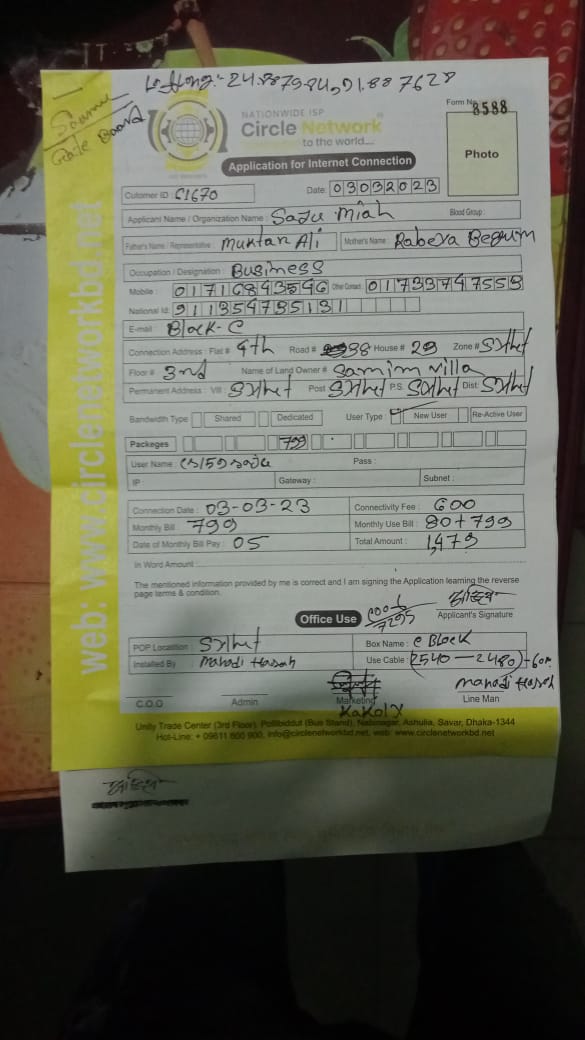 24.887984,91.887628
Form No 8588
NATIONWIDE ISP
Circle Network
to the world....
Photo
Application for Internet Connection
Cutomer ID: C1670 Date: 03032023
Applicant Name / Organization Name: Saju Miah Blood Group:
Father's Name / Representative: Muktar Ali Mother's Name: Rabeya Begum
Occupation / Designation: Business
Mobile: 01716843546 Other Contact: 01733747553
National Id: 911354735131
E-mail: Block-C
Connection Address: Flat # 4th Road # 38 House # 29 Zone #
Floor # 3rd Name of Land Owner # Samim villa
Permanent Address: Vill Post P.S. Dist:
Bandwidth Type Shared Dedicated User Type: New User Re-Active User
Packeges 799
User Name: Pass:
IP: Gateway: Subnet:
Connection Date: 03-03-23 Connectivity Fee: 600
Monthly Bill: 799 Monthly Use Bill: 80+799
Date of Monthly Bill Pay: 05 Total Amount: 1,479
In Word Amount:
The mentioned information provided by me is correct and I am signing the Application learning the reverse
page terms & condition.
Applicant's Signature
Office Use
POP Location: Box Name: e Block
Installed By: Mahadi Hasan Use Cable: (2540-2480)=60m
C.O.O Admin Marketing Line Man
Mahadi Hasan
Unity Trade Center (3rd Floor), Pollibiddut (Bus Stand), Nabinagar, Ashulia, Savar, Dhaka-1344
Hot-Line: + 09611 800 900, info@circlenetworkbd.net, web: www.circlenetworkbd.net
web: www.circlenetworkbd.net